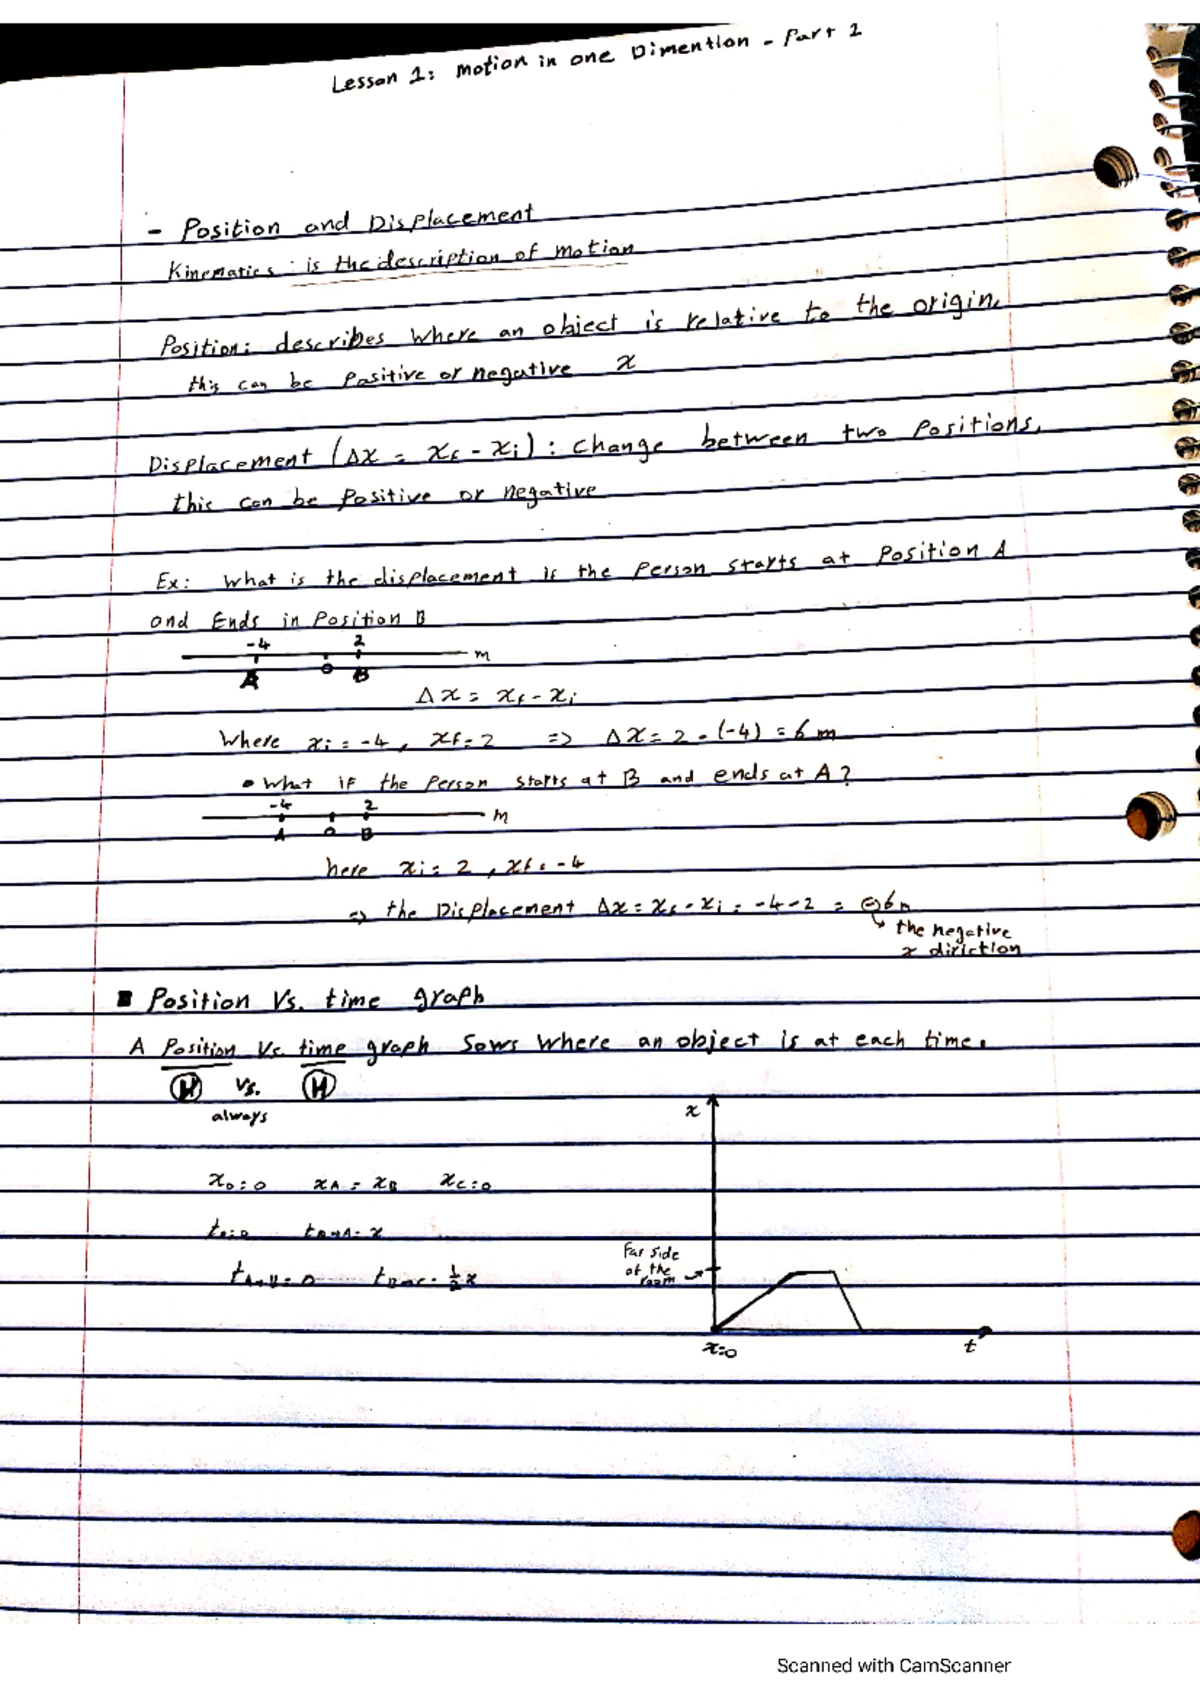 Lesson 1: Motion in one Dimention - Part 1
- Position and Displacement
Kinematics : is the description of motion
Position: describes where an object is relative to the origin.
this can be Positive or negative x
Displacement (Δx = xf - xi) : Change between two Positions.
this can be Positive or negative
Ex: What is the displacement is the Person starts at Position A
and Ends in Position B
-4 2
m
A 0 B
Δx = xf - xi
Where xi = -4 , xf = 2 => Δx = 2 - (-4) = 6 m
• What if the Person starts at B and ends at A?
-4 2
m
A 0 B
here xi = 2 , xf = -4
=> the Displacement Δx = xf - xi = -4 - 2 = -6m
the negative
x diriction
Position Vs. time graph
A Position Vs. time graph Sows where an object is at each time.
vs.
always
x
x0 = 0 xA = xB xC = 0
t0 = 0
Far side
of the
room
1/2 x
x=0
t
Scanned with CamScanner